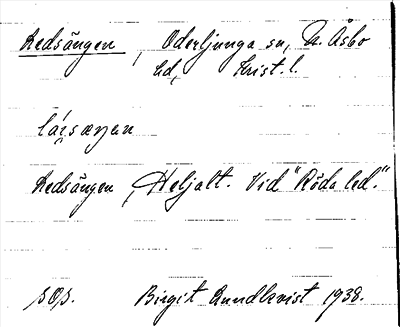 Ledsängen, Oderljunga sn, N. Åsbo
hd, Krist. l.
Ledsängen, Heljalt. Vid "Röda led."
sOs. Birgit Rundkvist 1938.